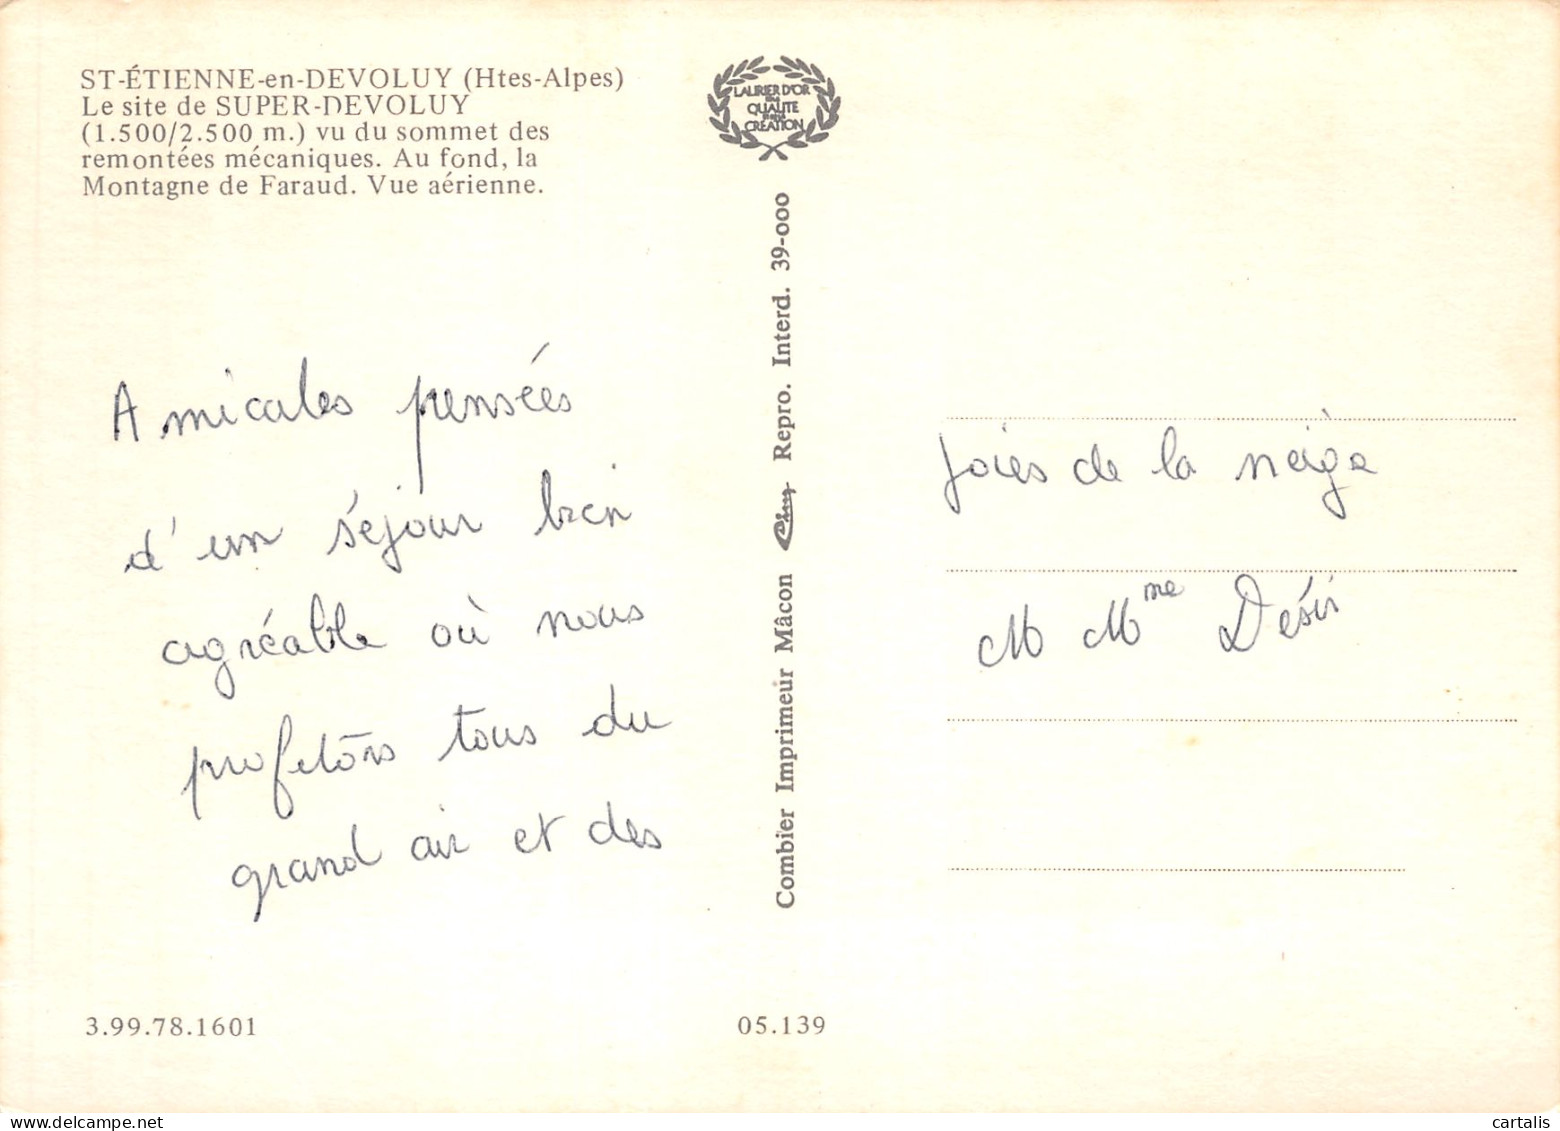 ST-ÉTIENNE-en-DEVOLUY (Htes-Alpes)
Le site de SUPER-DEVOLUY
(1.500/2.500 m.) vu du sommet des
remontées mécaniques. Au fond, la
Montagne de Faraud. Vue aérienne.
LAURIER D'OR
QUALITE
CREATION
Amicales pensées
d'un séjour bien
agréable où nous
profitons tous du
grand air et des
Combier Imprimeur Mâcon Repro. Interd. 39-000
joies de la neige
M Mme Désir
3.99.78.1601
05.139
cartalis